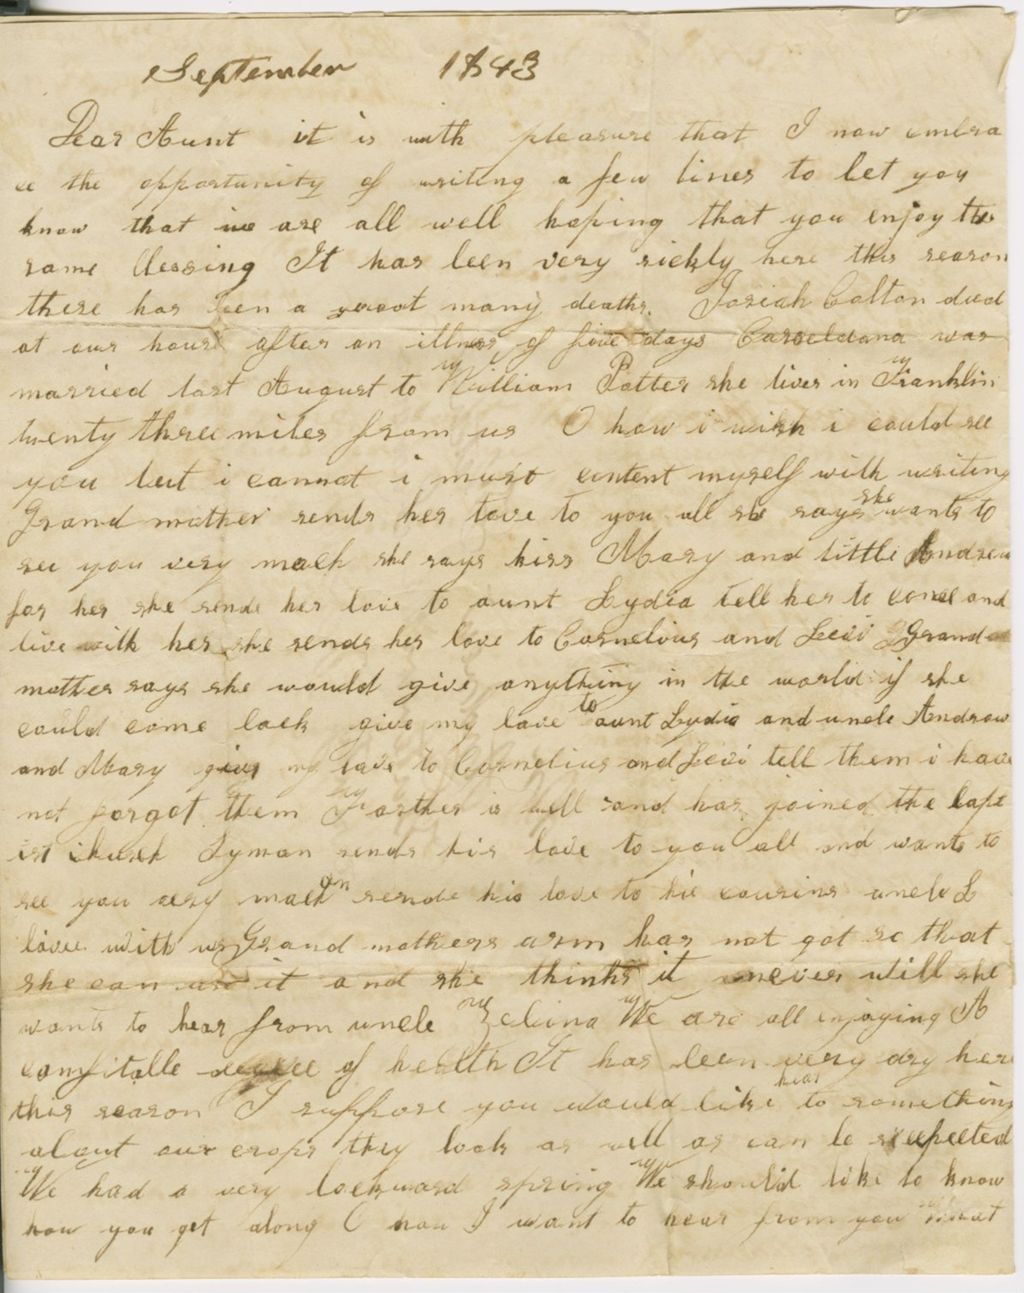 September 1843
Dear Aunt it is with pleasure that I now embra
ce the opportunity of writing a few lines to let you
know that we are all well hoping that you enjoy the
same blessing It has been very sickly here this season
there has been a many deaths. Josiah Colton died
at our house after an illness of five days was
married last August to William Potter she lives in Franklin
twenty three miles from us O how i wish i could see
you but i cannot i must content myself with writing
Grand mother sends her love to you all she says she wants to
see you very much she says kiss Mary and little Andrew
for her she sends her love to aunt Lydia tell her to come and
live with her she sends her love to Cornelius and Levi Grand
mother says she would give anything in the world if she
could come back give my love to aunt Lydia and uncle Andrew
and Mary give my love to Cornelius and Levi tell them i have
not forgot them Farther is well and has joined the bapt
ist church Lyman sends his love to you all and wants to
see you very much sends his love to his cousins uncle L
lives with us Grand mothers arm has not got so that
she can use it and she thinks it never will she
wants to hear from uncle We are all enjoying A
comfitable degree of health It has been very dry here
this season I suppose you would like to hear something
about our crops they look as well as can be expected
We had a very backward spring We should like to know
how you get along O how I want to hear from you